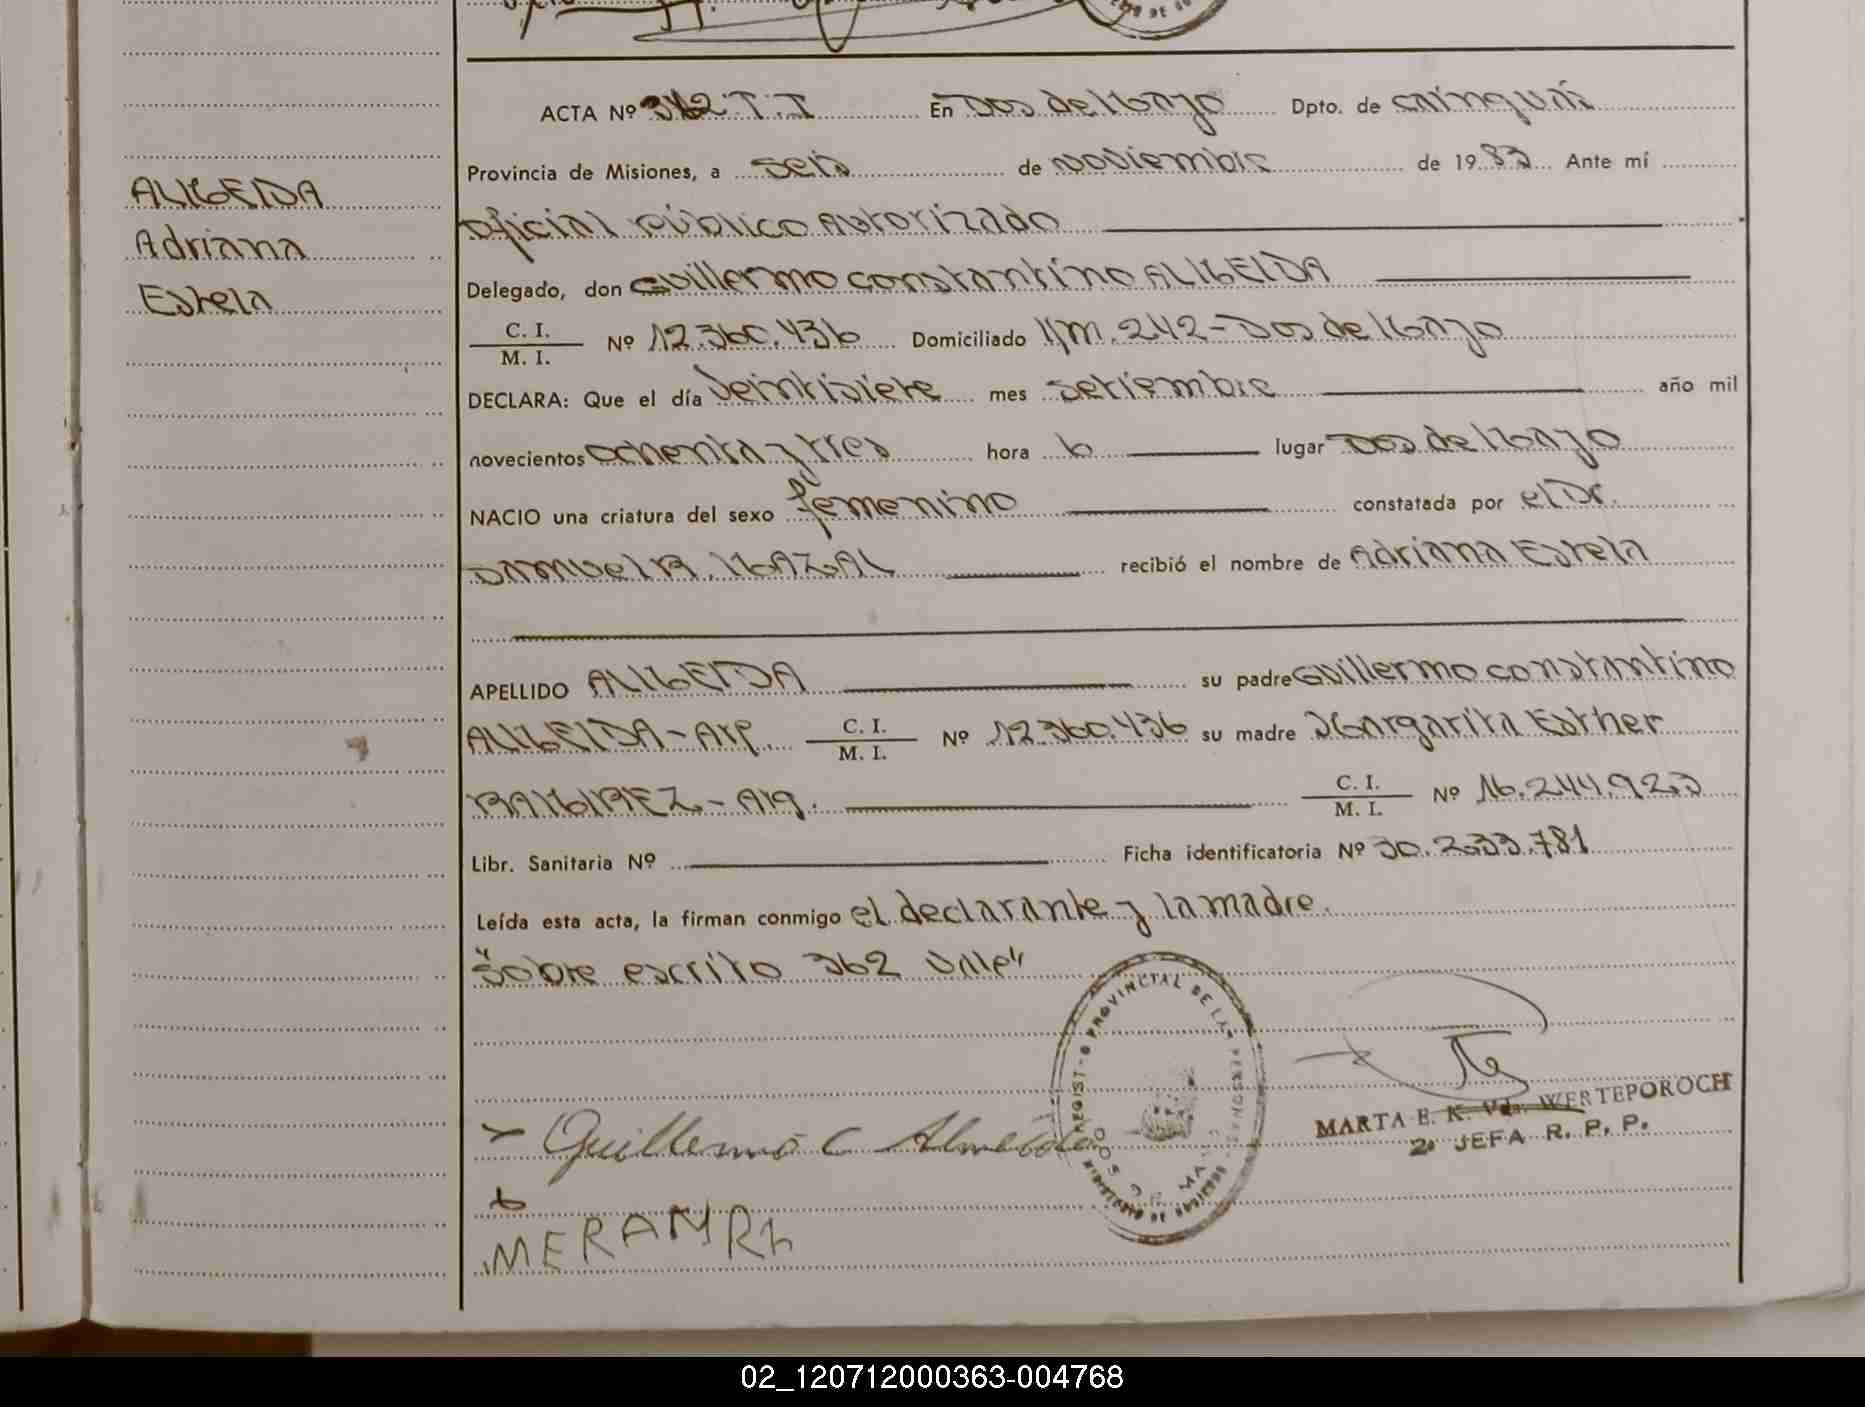 ACTA Nº 362 T.I En Dos de Mayo Dpto. de Cainguás
Provincia de Misiones, a seis de noviembre de 1983 Ante mí
Oficial Público Autorizado
Delegado, don Guillermo Constantino ALMEIDA
C. I.
M. I.
Nº 12.360.436 Domiciliado Km. 242 - Dos de Mayo
ALMEIDA
Adriana
Estela
DECLARA: Que el día Veintisiete mes setiembre año mil
novecientos ochenta y tres hora 6 lugar Dos de Mayo
NACIO una criatura del sexo femenino constatada por el Dr.
Samuel R. MAZAL recibió el nombre de Adriana Estela
APELLIDO ALMEIDA su padre Guillermo Constantino
ALMEIDA - Arg. C. I. M. I. Nº 12.360.436 su madre Margarita Esther
RAMIREZ - Arg. C. I. M. I. Nº 16.244.923
Libr. Sanitaria Nº Ficha identificatoria Nº 30.233.781
Leída esta acta, la firman conmigo el declarante y la madre.
"Sobre escrito 362 Vale"
PROVINCIAL DE LAS PERSONAS
Guillermo C Almeida
MARTA E. K. Vda. WERTEPOROCH
2ª JEFA R. P. P.
MERAMRh
02_120712000363-004768